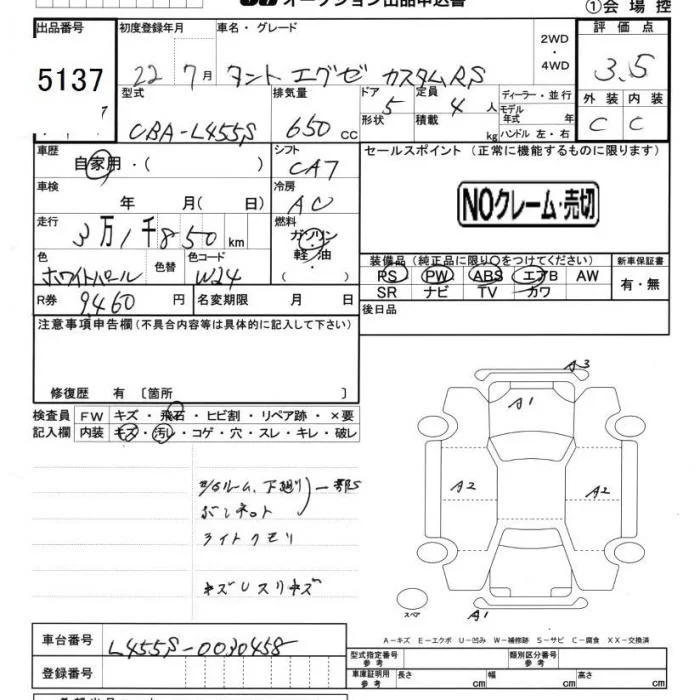 オークション出品申込書
①会場控
出品番号
5137
初度登録年月
22 7月
車名・グレード
タント エグゼ カスタムRS
2WD・4WD
評価点
3.5
型式
CBA-L455S
排気量
650 cc
ドア 5
形状
定員 4 人
積載 kg
ディーラー・並行
モデル年式 年
ハンドル 左・右
外装 内装
C C
車歴
自家用・( )
シフト
CA7
セールスポイント (正常に機能するものに限ります)
NOクレーム・売切
車検
年 月( 日)
冷房
AC
走行
3万1千850km
燃料
ガソリン・軽油
色
ホワイトパール
色替
色コード
W24
装備品(純正品に限り○をつけてください)
PS PW ABS エアB AW
SR ナビ TV カワ
新車保証書
有・無
R券 9,460 円
名変期限 月 日
後日品
注意事項申告欄(不具合内容等は具体的に記入して下さい)
修復歴 有 〔箇所 〕
検査員記入欄
FW キズ・飛石・ヒビ割・リペア跡・×要
内装 キズ・汚レ・コゲ・穴・スレ・キレ・破レ
下廻り 一部S
ボンネット
ライトクモリ
キズUスリキズ
A3
A1
A2
A2
A1
スペア
A-キズ E-エクボ U-凹み W-補修跡 S-サビ C-腐食 XX-交換済
車台番号
L455S-0030458
登録番号
型式指定番号 参考
類別区分番号 参考
車庫証明用 参考
長さ cm
幅 cm
高さ cm